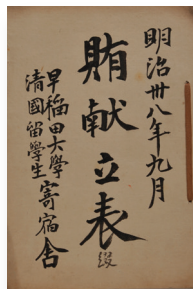 明治卅八年九月
賄献立表
早稲田大學
清國留學生
寄宿舍